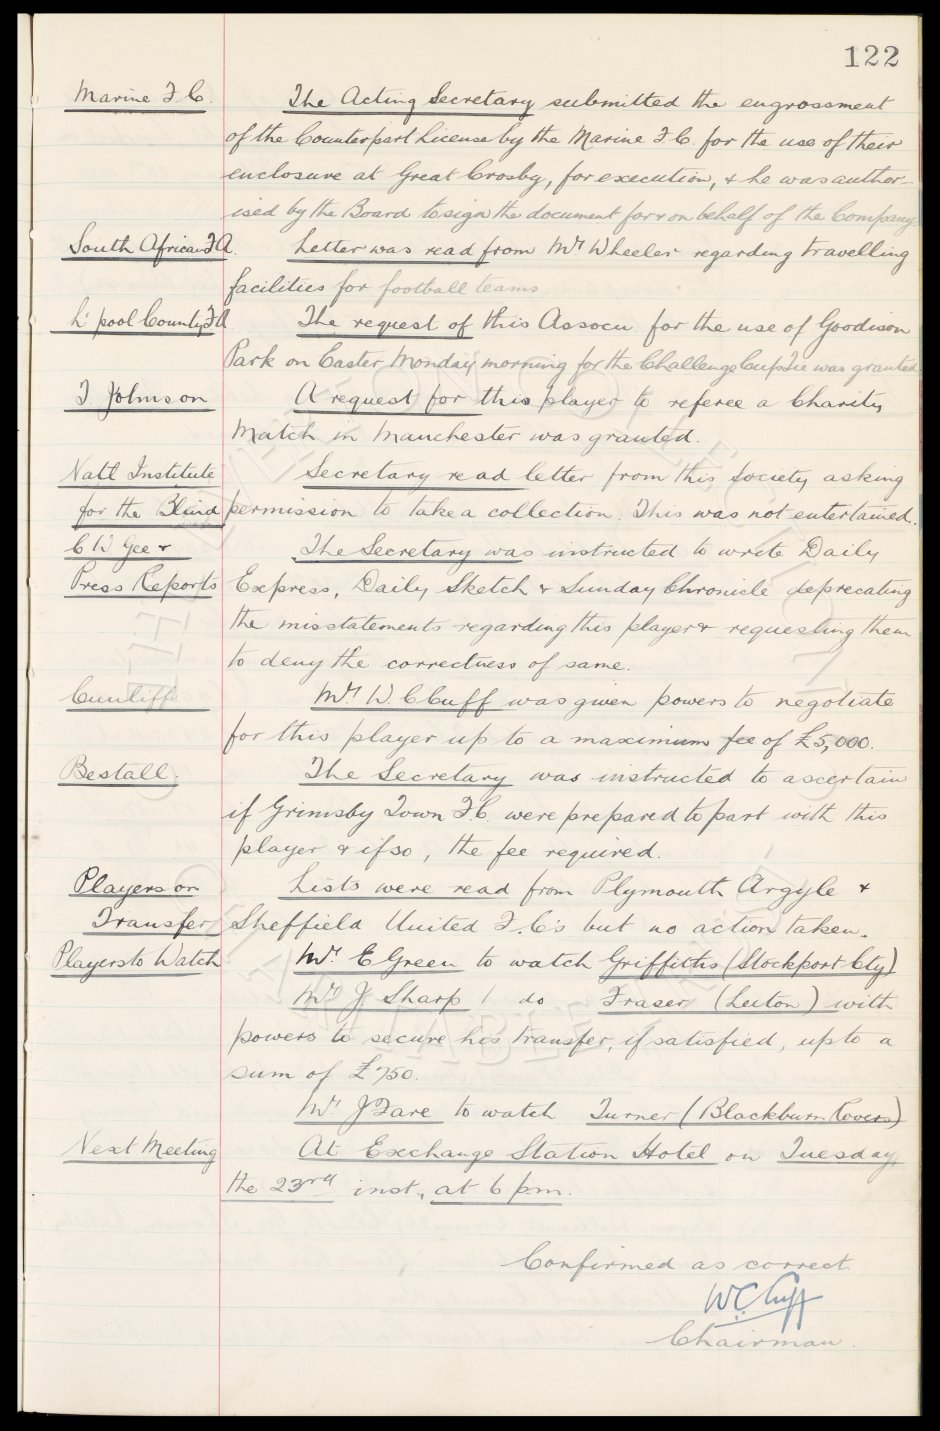 122
Marine F.C. The Acting Secretary submitted the engrossment
of the Counterpart License by the Marine F.C. for the use of their
enclosure at Great Crosby, for execution, & he was author-
ised by the Board to sign the document for & on behalf of the Company.
South African F.A. Letter was read from Mr Wheeler regarding travelling
facilities for football teams.
L'pool County F.A The request of this Assocn for the use of Goodison
Park on Easter Monday morning for the Challenge Cup tie was granted
T Johnson A request for this player to referee a Charity
Match in Manchester was granted.
Natl Institute Secretary read letter from this Society asking
for the Blind permission to take a collection. This was not entertained.
C W Gee & The Secretary was instructed to write Daily
Press Reports Express, Daily Sketch & Sunday Chronicle deprecating
the misstatements regarding this player & requesting them
to deny the correctness of same.
Cunliffe Mr W. C Cuff was given powers to negotiate
for this player up to a maximum fee of £5,000.
Bestall. The Secretary was instructed to ascertain
if Grimsby Town F.C. were prepared to part with this
player & if so, the fee required.
Players on Lists were read from Plymouth Argyle &
Transfer Sheffield United F.C's but no action taken.
Players to Watch Mr E Green to watch Griffiths (Stockport Cty)
Mr J Sharp / do Fraser (Luton) with
powers to secure his transfer, if satisfied, up to a
sum of £750.
Mr J Fare to watch Turner (Blackburn Rovers)
Next Meeting At Exchange Station Hotel on Tuesday,
the 23rd inst., at 6 p.m.
Confirmed as correct.
W.C. Cuff
Chairman.